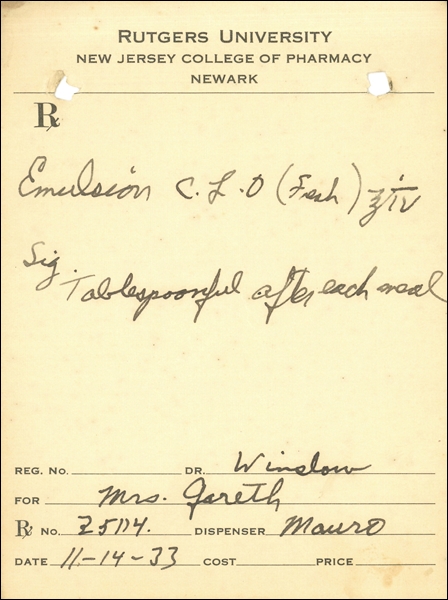 RUTGERS UNIVERSITY
NEW JERSEY COLLEGE OF PHARMACY
NEWARK
℞
Emulsion C. L. O (Fresh) ℥ IV
Sig.
Tablespoonful after each meal
REG. NO. DR. Winslow
FOR Mrs. Gareth
℞ NO. 25114. DISPENSER Mauro
DATE 11-14-33 COST PRICE